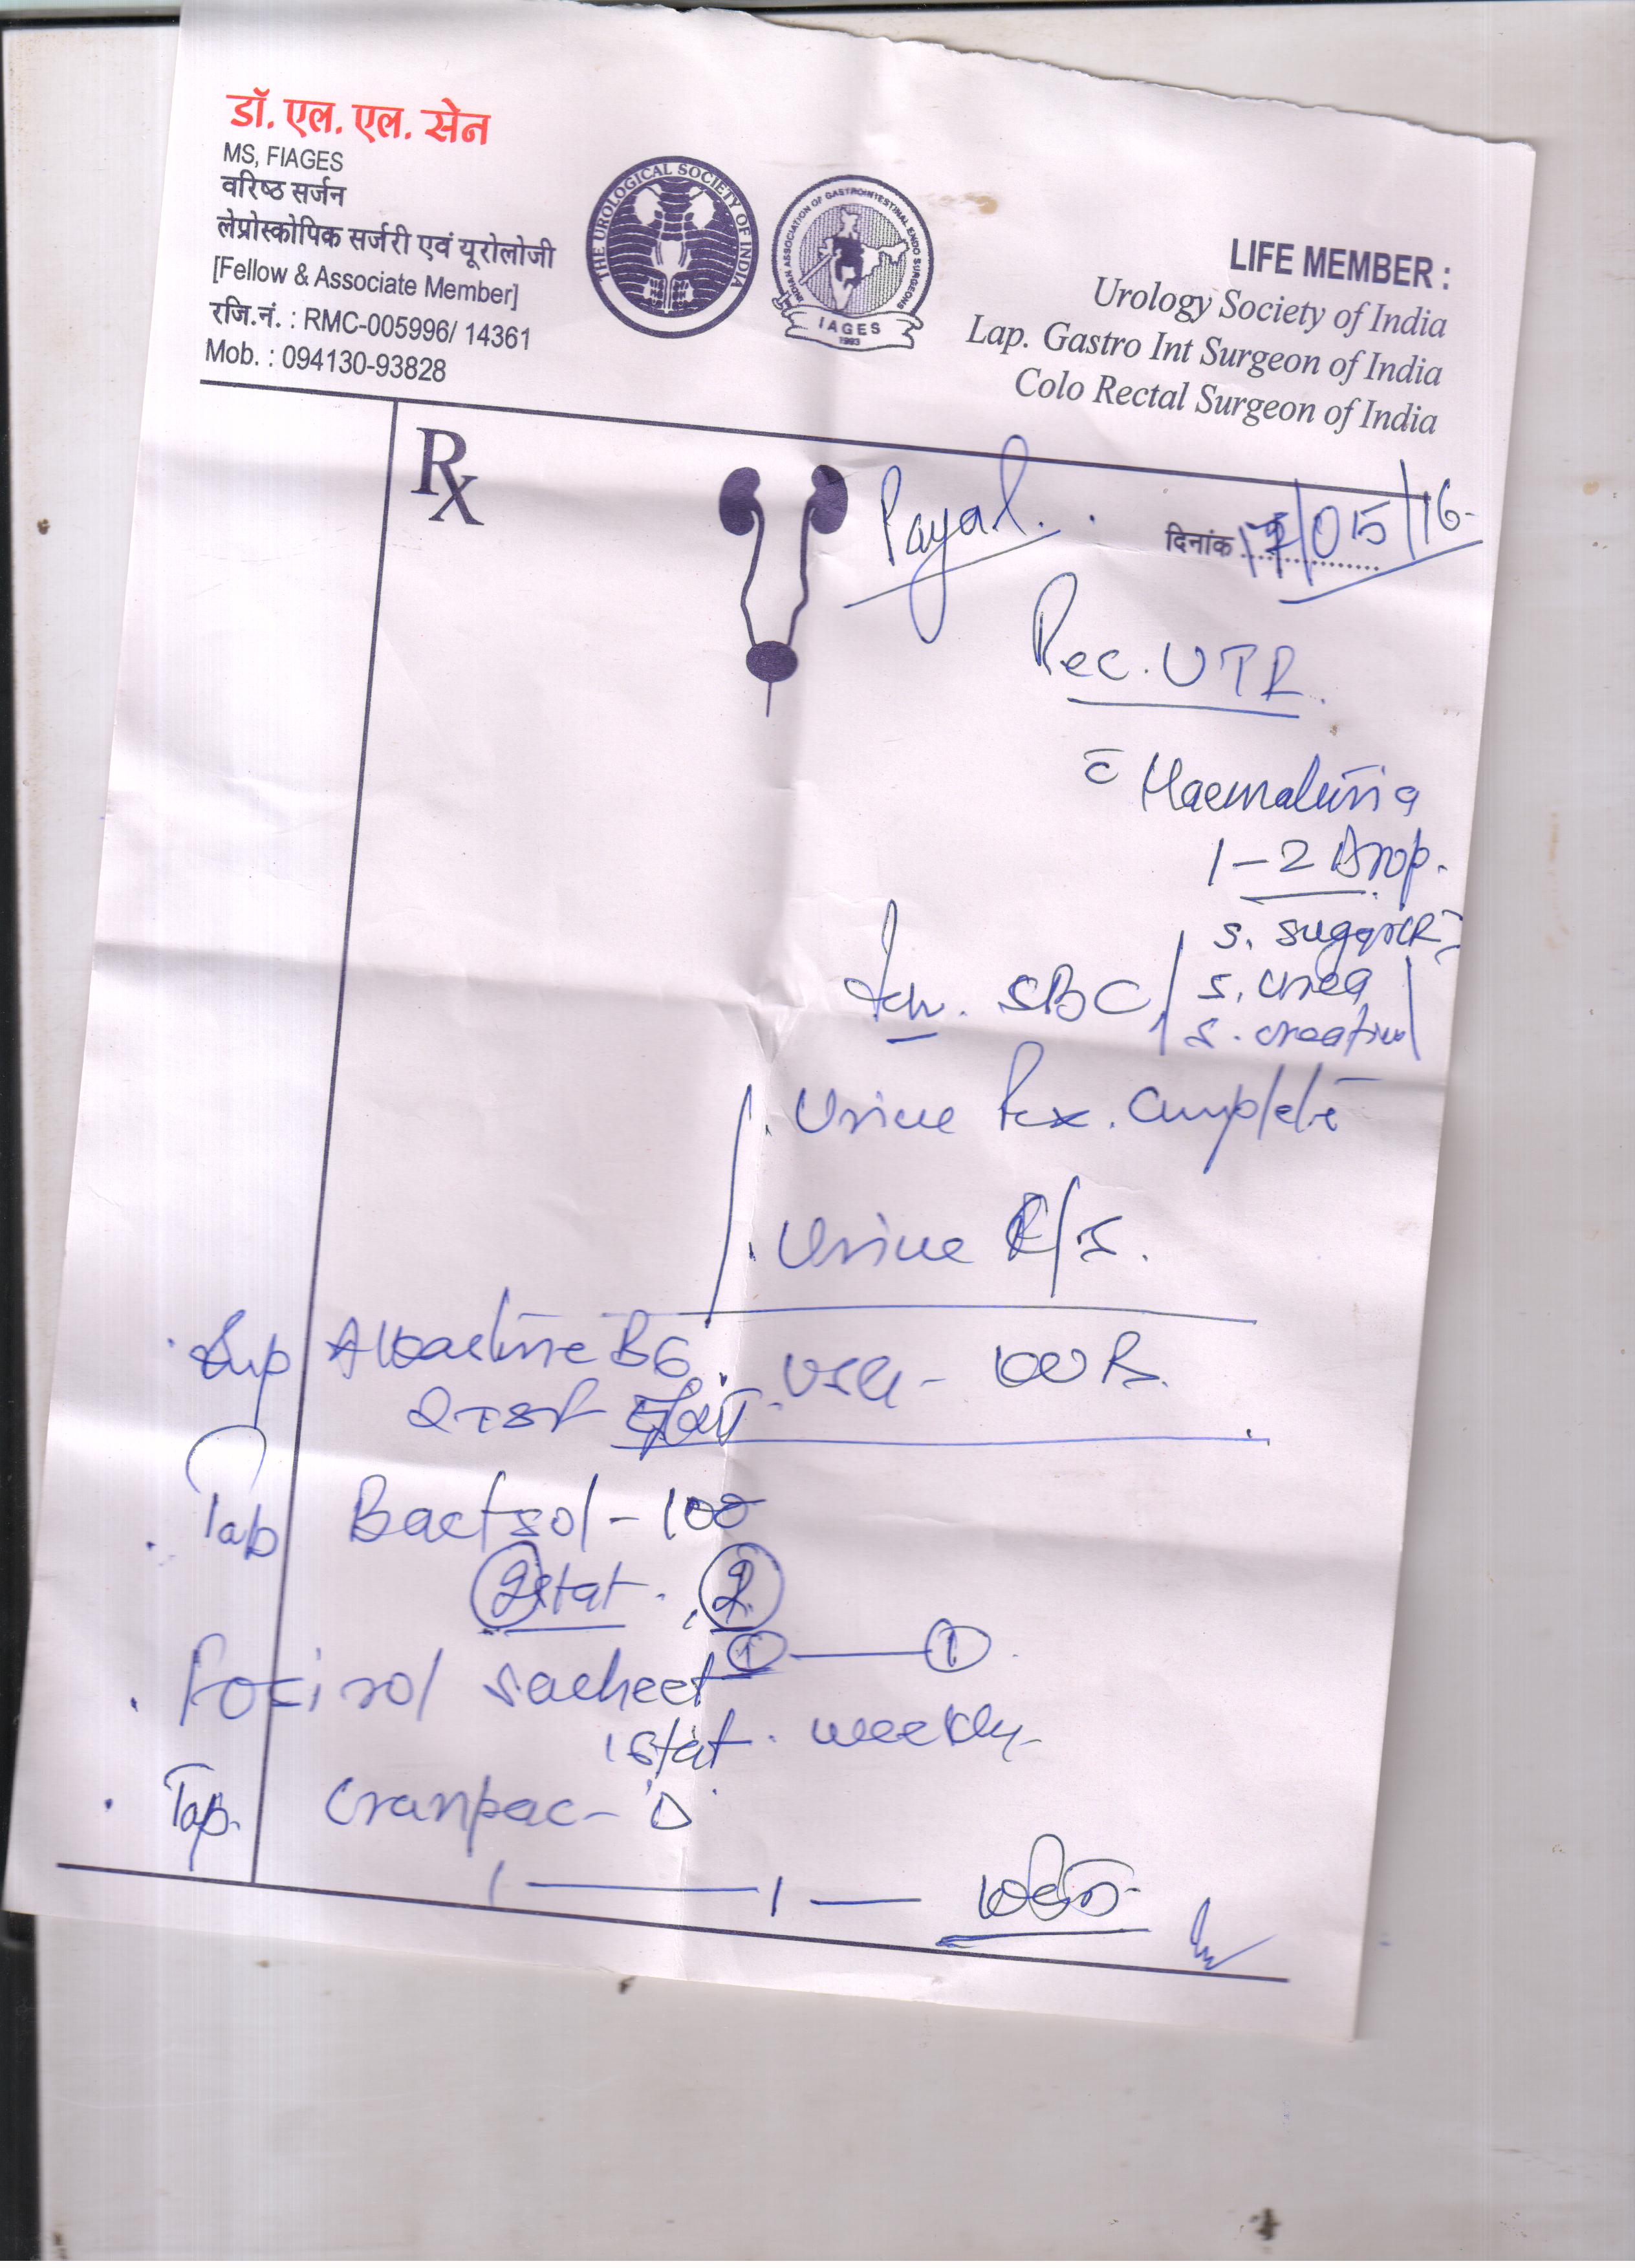 डॉ. एल. एल. सेन
MS, FIAGES
वरिष्ठ सर्जन
लेप्रोस्कोपिक सर्जरी एवं यूरोलोजी
[Fellow & Associate Member]
रजि.नं. : RMC-005996/ 14361
Mob. : 094130-93828
THE UROLOGICAL SOCIETY OF INDIA
INDIAN ASSOCIATION OF GASTROINTESTINAL ENDO SURGEONS
IAGES
1993
LIFE MEMBER :
Urology Society of India
Lap. Gastro Int Surgeon of India
Colo Rectal Surgeon of India
Rx
Payal.
दिनांक 17/05/16
Rec. UTI
c̄ Haematuria
1-2 Drop.
S. Sugar
CBC / S. Urea
S. creatin
Urine Complete
Urine C/S.
Syp Alkacitrine B6
Tab Bactrol-100
2 stat. 2
sacheet 1 — 1
1 stat. weekly
Tab. Cranpac-D
1 — 1 —